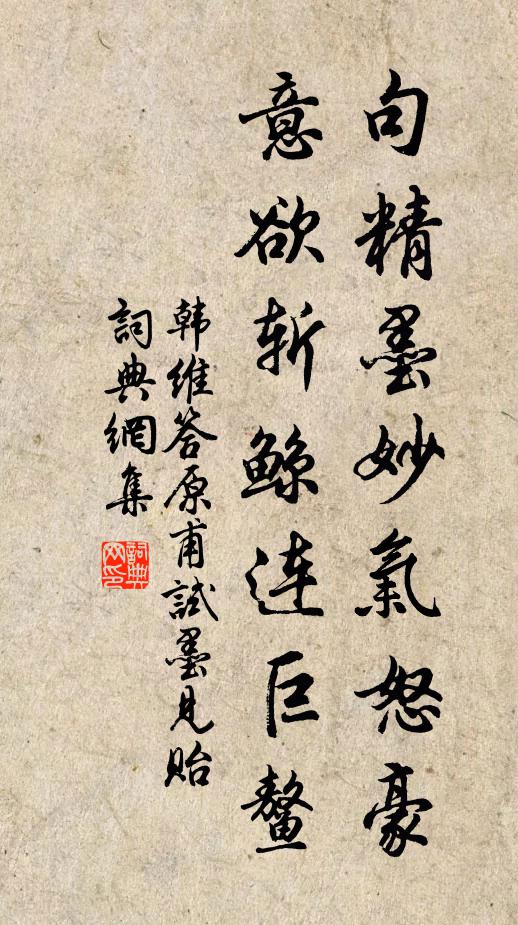 句精墨妙氣怒豪
意欲斩鲸連巨鳌
韩維答原甫試墨見貽
詞典網集
詞典
网印